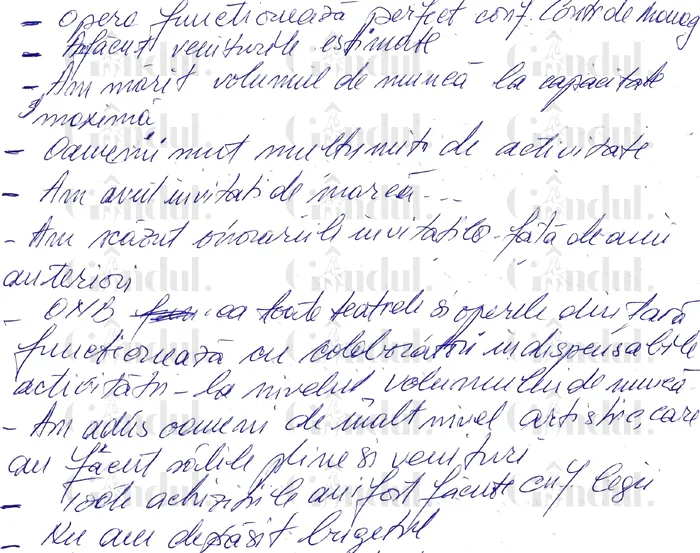 - Opera funcționează perfect conf. Contr de Manag
- A făcut veniturile estimate
- Am mărit volumul de muncă la capacitate
maximă
- Oamenii sunt mulțumiți de activitate
- Am avut invitați de marcă...
- Am scăzut onorariile invitaților față de anii
anteriori
- ONB ca toate teatrele și operele din țară
funcționează cu colaboratori indispensabili
activității - la nivelul volumului de muncă
- Am adus oameni de înalt nivel artistic, care
au făcut sălile pline și venituri
- Toate achizițiile au fost făcute conf. legii
- Nu am depășit bugetul
Gândul.